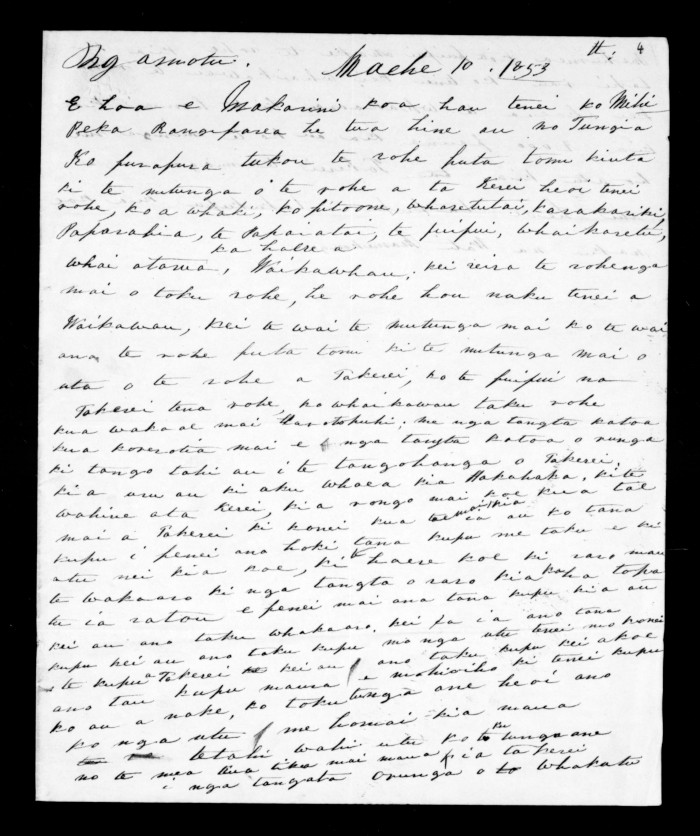 Ngamotu. Maehe 10. 1853
E hoa e Makarini koa hau tenei ko Mihi
Peka Rangifarea he tua hine au no Tungia
Ko purapura tukou te rohe puta tomu kiuta
ki te mutunga o te rohe a ta Kerei heoi tenei
rohe, ko a whaki, ko pitoone, wharetutai, karakariki,
Paparahia, te Papaiatai, te puipui, whai karetu,
ka haere a
whai atawa, Waikawhau, kei reira te rohenga
mai o toku rohe, he rohe hou naku tenei a
Waikawau, kei te wai te mutunga mai ko te wai
ana te rohe puta tomu ki te mutunga mai o
uta o te rohe a Takerei, ko te puipui na
Takerei tena rohe, ko whaikawau taku rohe
kua wakaae mai ; me nga tangta katoa
kua korerotia mai e nga tangta katoa o runga
ki tango tahi au i te tangohanga o Takerei.
kia uru au ki aku whaea kia Hakahaka, ki te
wahine ata Kerei, kia rongo mai koe kua tae
mai a Takerei ki konei kua mai kia ia au ko tana
kupu i penei ana hoki tana kupu me taku e ki
atu nei kia koe, ki te haere koe ki raro mau
te wakaaro ki nga tangta o raro kia koha topa
tu ia ratou e penei mai ana tana kupu kia au
kei au ano taku whakaaro. kei fa ia ano tana
kupu kei au ano taku kupu mo nga utu tenei mo konei
te kupu a Takerei kei au ano taku kupu kei akoe
ano tau kupu maua e mohioiho ki tenei kupu
ko au a nake, ko toku tungane heoi ano
ko nga utu me homai kia maua
tetahi wahi utu ko toku tungaane
no te mea kua tika mai maua kia takerei
i nga tangata orunga o whakatu